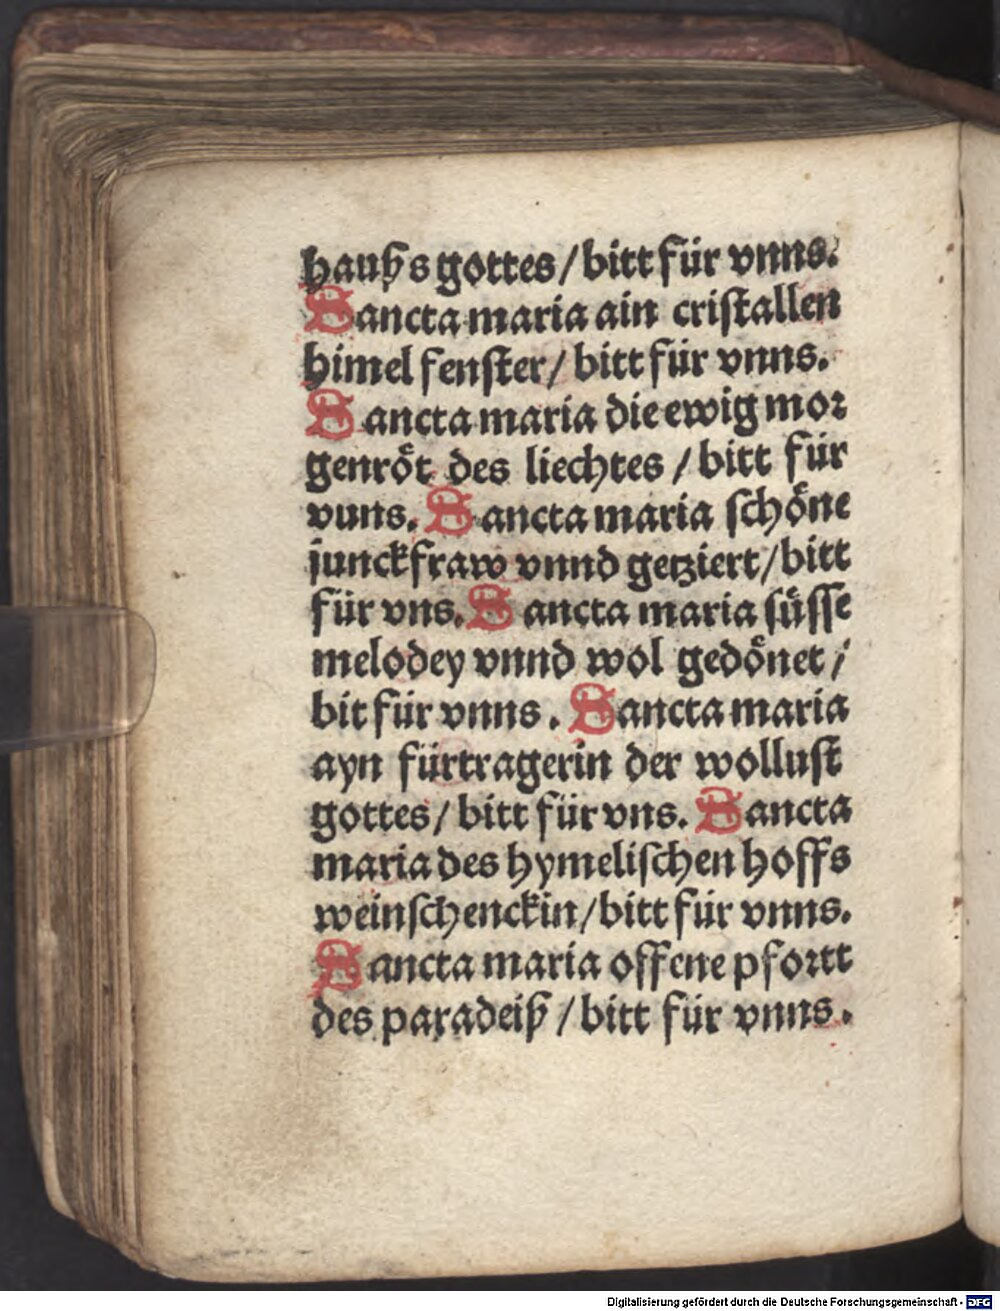 hauß s gottes / bitt für vnns.
Sancta maria ain cristallen
himel fenster / bitt für vnns.
Sancta maria die ewig mor
genröt des liechtes / bitt für
vuns. Sancta maria schöne
junckfraw vnnd getziert / bitt
für vns. Sancta maria süsse
melodey vnnd wol gedönet /
bit für vnns. Sancta maria
ayn fürtragerin der wollust
gottes / bitt für vns. Sancta
maria des hymelischen hoffs
weinschenckin / bitt für vnns.
Sancta maria offene pfortt
des paradeiß / bitt für vnns.
Digitalisierung gefördert durch die Deutsche Forschungsgemeinschaft - DFG